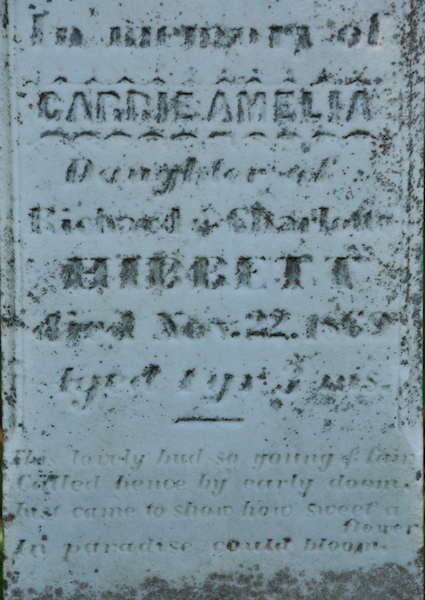 In memory of
CARRIE AMELIA
Daughter of
Richard & Charlotte
died Nov. 22. 186
aged 1 yr. ms.
This lovely bud so young & fair
Called hence by early doom.
Just came to show how sweet a
flower
In paradise could bloom.